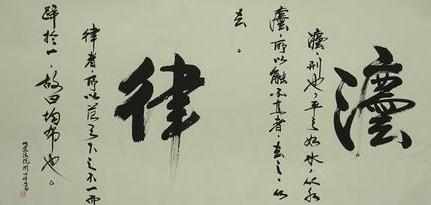 灋
灋，刑也，平之如水，从水
廌，所以触不直者，去之，从
去。
律
律者，所以范天下之不一而
歸於一，故曰均布也。